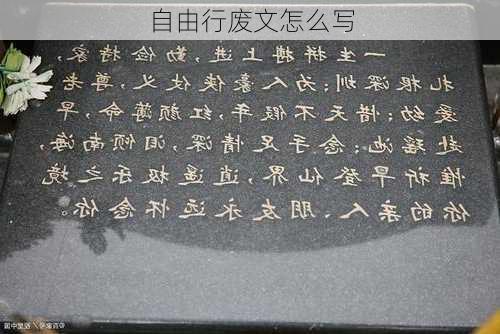 自由行废文怎么写
一生拼搏上进，勤俭持家，
扎根深圳；为人豪侠仗义，尊老
爱幼；惜天不假年，红颜薄命，早
赴瑶池；念手足情深，泪倾南海，
惟祈早登仙界，逍遥极乐之境
你的亲人、朋友永远怀念你。